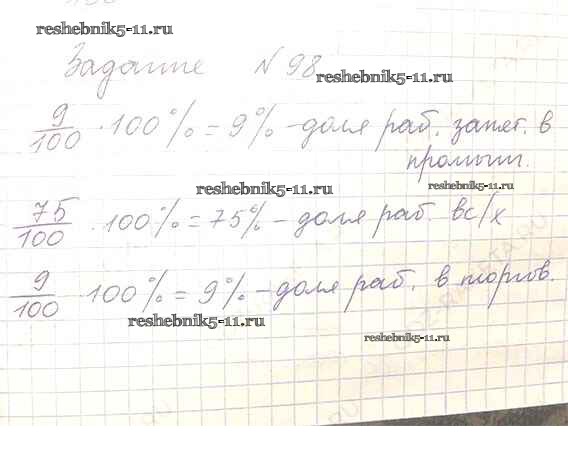 reshebnik5-11.ru
Задание №98
reshebnik5-11.ru
9/100 · 100% = 9% - доля раб. занят. в
промыш.
reshebnik5-11.ru
reshebnik5-11.ru
75/100 · 100% = 75% - доля раб. в с/х
9/100 · 100% = 9% - доля раб. в торгов.
reshebnik5-11.ru
reshebnik5-11.ru